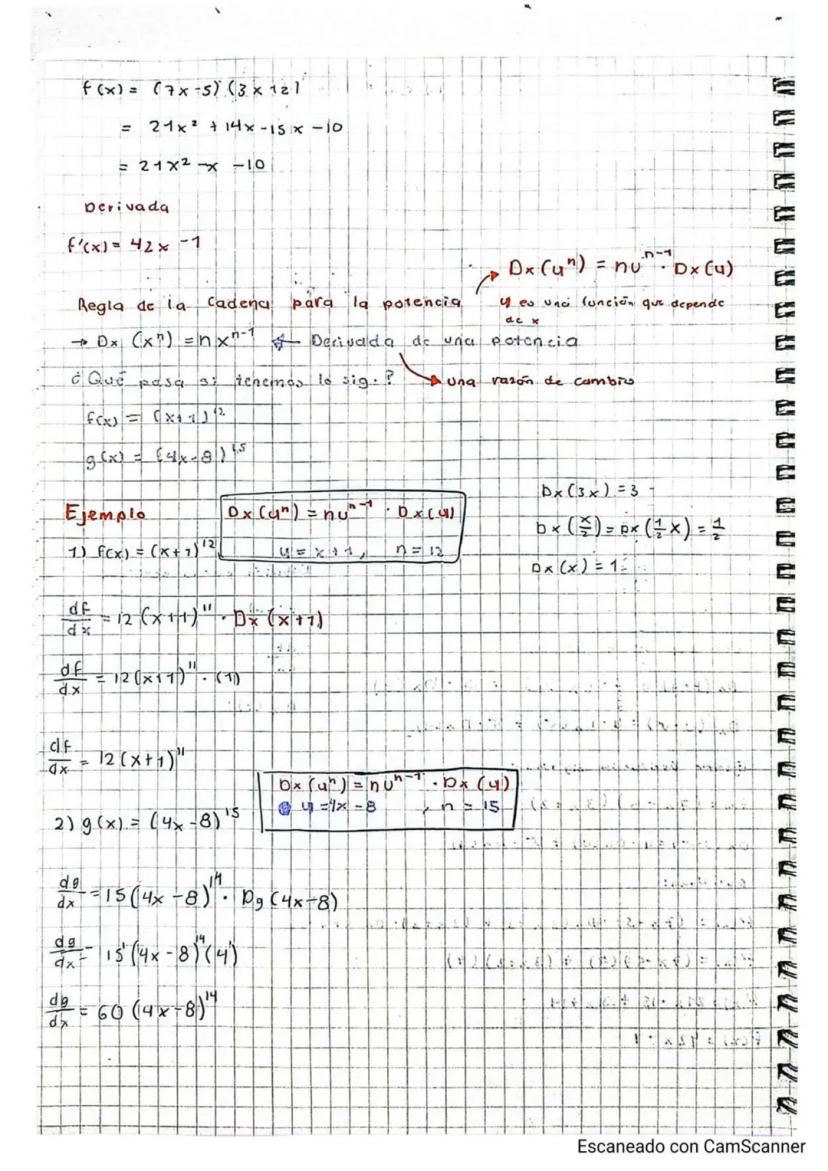 f(x) = (7x-5)(3x+2)
= 21x² + 14x - 15x - 10
= 21x² - x - 10
Derivada
f'(x) = 42x - 1
Dx(uⁿ) = nuⁿ⁻¹ · Dx(u)
Regla de la cadena para la potencia
u es una función que depende
de x
→ Dx (xⁿ) = nxⁿ⁻¹ ← Derivada de una potencia
¿Qué pasa si tenemos lo sig.?
una razón de cambio
f(x) = (x+1)¹²
g(x) = (4x-8)¹⁵
Dx(3x) = 3
Ejemplo
Dx(uⁿ) = nuⁿ⁻¹ · Dx(u)
Dx(x/2) = Dx(1/2 x) = 1/2
1) f(x) = (x+1)¹²
u = x+1, n = 12
Dx(x) = 1
df/dx = 12(x+1)¹¹ · Dx(x+1)
df/dx = 12(x+1)¹¹ · (1)
df/dx = 12(x+1)¹¹
Dx(uⁿ) = nuⁿ⁻¹ · Dx(u)
u = 4x-8, n = 15
2) g(x) = (4x-8)¹⁵
dg/dx = 15(4x-8)¹⁴ · Dg(4x-8)
dg/dx = 15(4x-8)¹⁴(4)
dg/dx = 60(4x-8)¹⁴
Escaneado con CamScanner